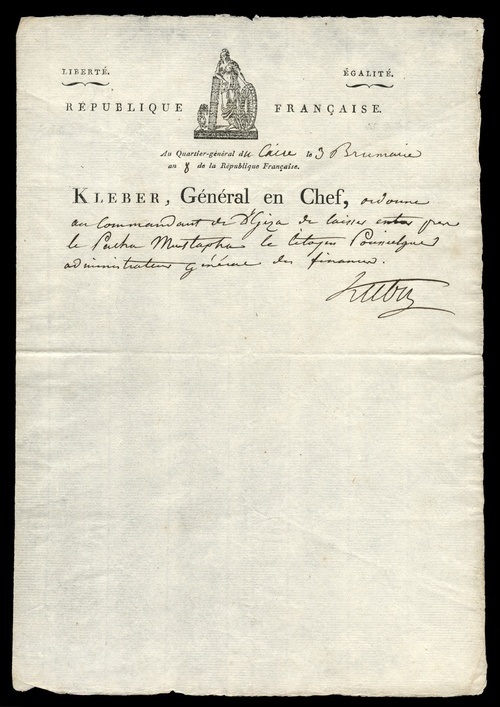 LIBERTÉ.
ÉGALITÉ.
RÉPUBLIQUE FRANÇAISE.
Au Quartier-général du Caire le 3 Brumaire
an 8 de la République Française.
KLEBER, Général en Chef, ordonne
au Commandant de Giza de laisser
le Pacha Mustapha le Citoyen Poussielgue
administrateur général des finances.
Kleber